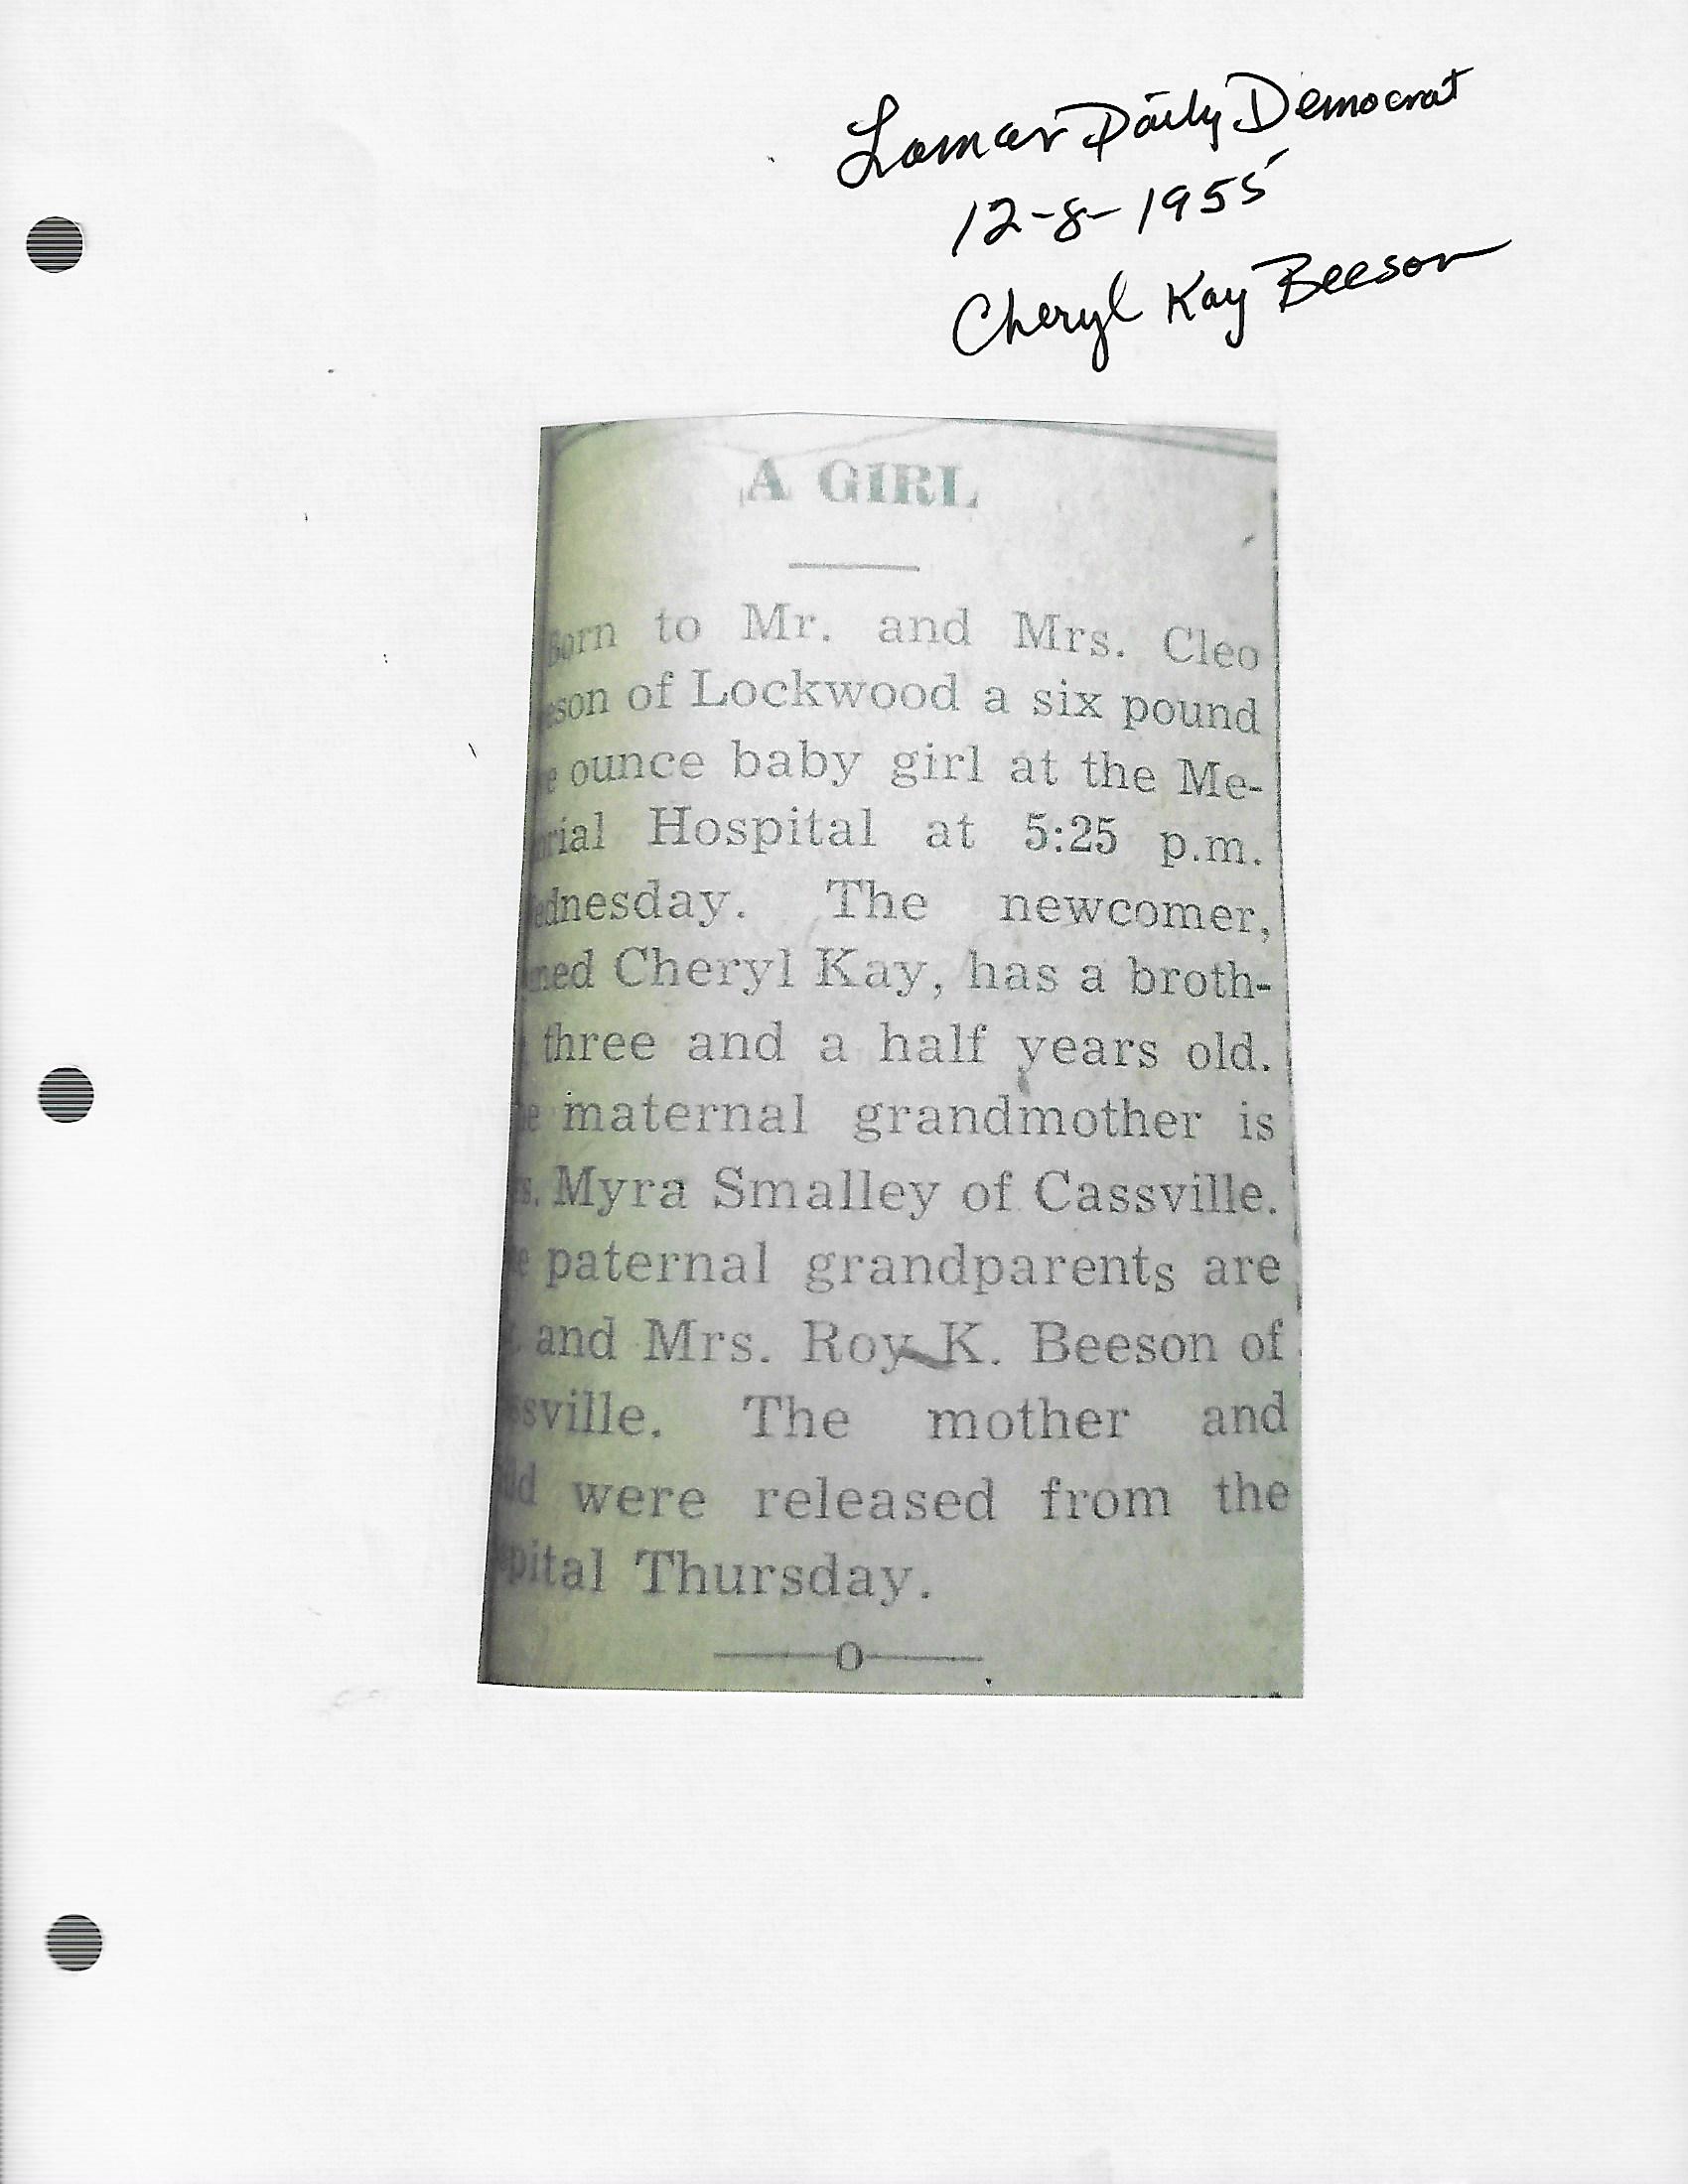 Lamar Daily Democrat
12-8-1955
Cheryl Kay Beeson
A GIRL
Born to Mr. and Mrs. Cleo
eson of Lockwood a six pound
e ounce baby girl at the Me-
orial Hospital at 5:25 p.m.
ednesday. The newcomer,
med Cheryl Kay, has a broth-
three and a half years old.
e maternal grandmother is
s. Myra Smalley of Cassville.
e paternal grandparents are
and Mrs. Roy K. Beeson of
ssville. The mother and
ld were released from the
pital Thursday.
O